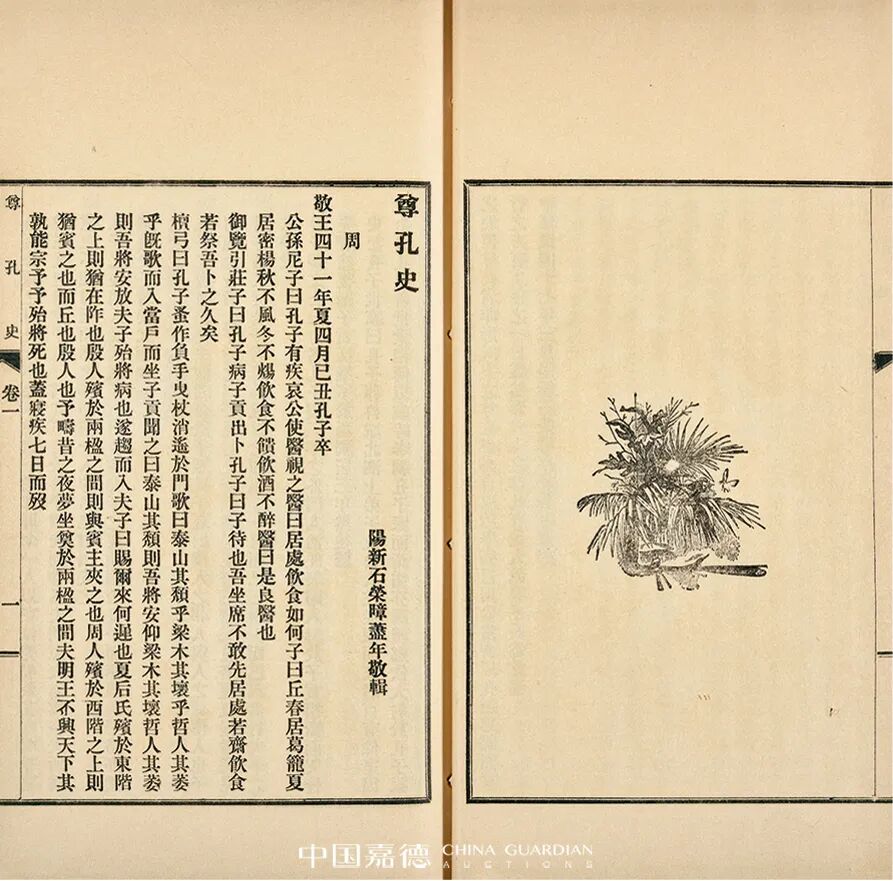 尊孔史
陽新石榮暲蓋年敬輯
周
敬王四十一年夏四月己丑孔子卒
公孫尼子曰孔子有疾哀公使醫視之醫曰居處飲食如何子曰丘春居葛籠夏
居密楊秋不風冬不煬飲食不饋飲酒不醉醫曰是良醫也
御覽引莊子曰孔子病子貢出卜孔子曰子待也吾坐席不敢先居處若齋飲食
若祭吾卜之久矣
檀弓曰孔子蚤作負手曳杖消遙於門歌曰泰山其頹乎梁木其壞乎哲人其萎
乎旣歌而入當戶而坐子貢聞之曰泰山其頹則吾將安仰梁木其壞哲人其萎
則吾將安放夫子殆將病也遂趨而入夫子曰賜爾來何遲也夏后氏殯於東階
之上則猶在阼也殷人殯於兩楹之間則與賓主夾之也周人殯於西階之上則
猶賓之也而丘也殷人也予疇昔之夜夢坐奠於兩楹之間夫明王不興天下其
孰能宗予予殆將死也蓋寢疾七日而歿
尊孔史
卷一
一
中国嘉德 CHINA GUARDIAN
AUCTIONS